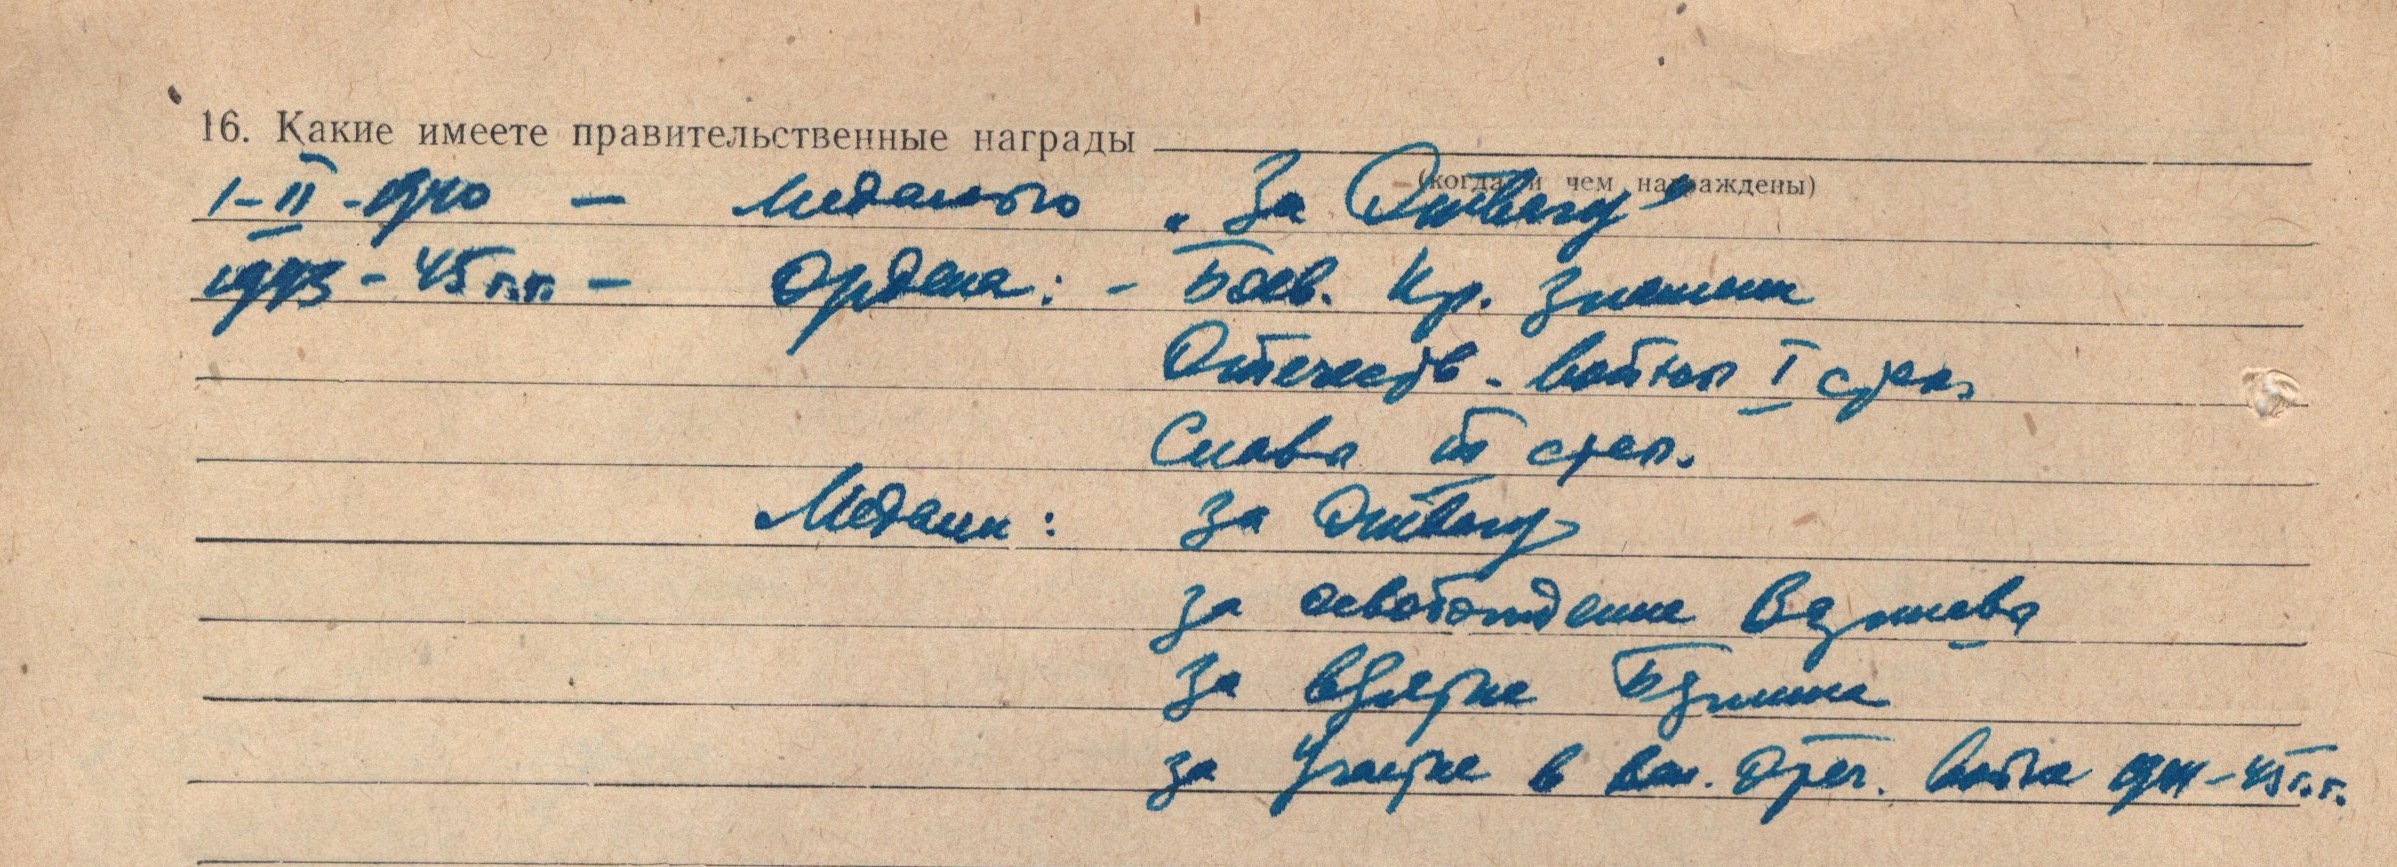 16. Какие имеете правительственные награды
(когда и чем награждены)
1-II-1940 — Медалью „За Отвагу"
1943-45 г.г. — Ордена: - Боев. Кр. Знамени
Отечеств. войны I степ.
Славы III степ.
Медали: За Отвагу
за освобождение Варшавы
за взятие Берлина
за участие в вел. Отеч. войне 1941-45 г.г.